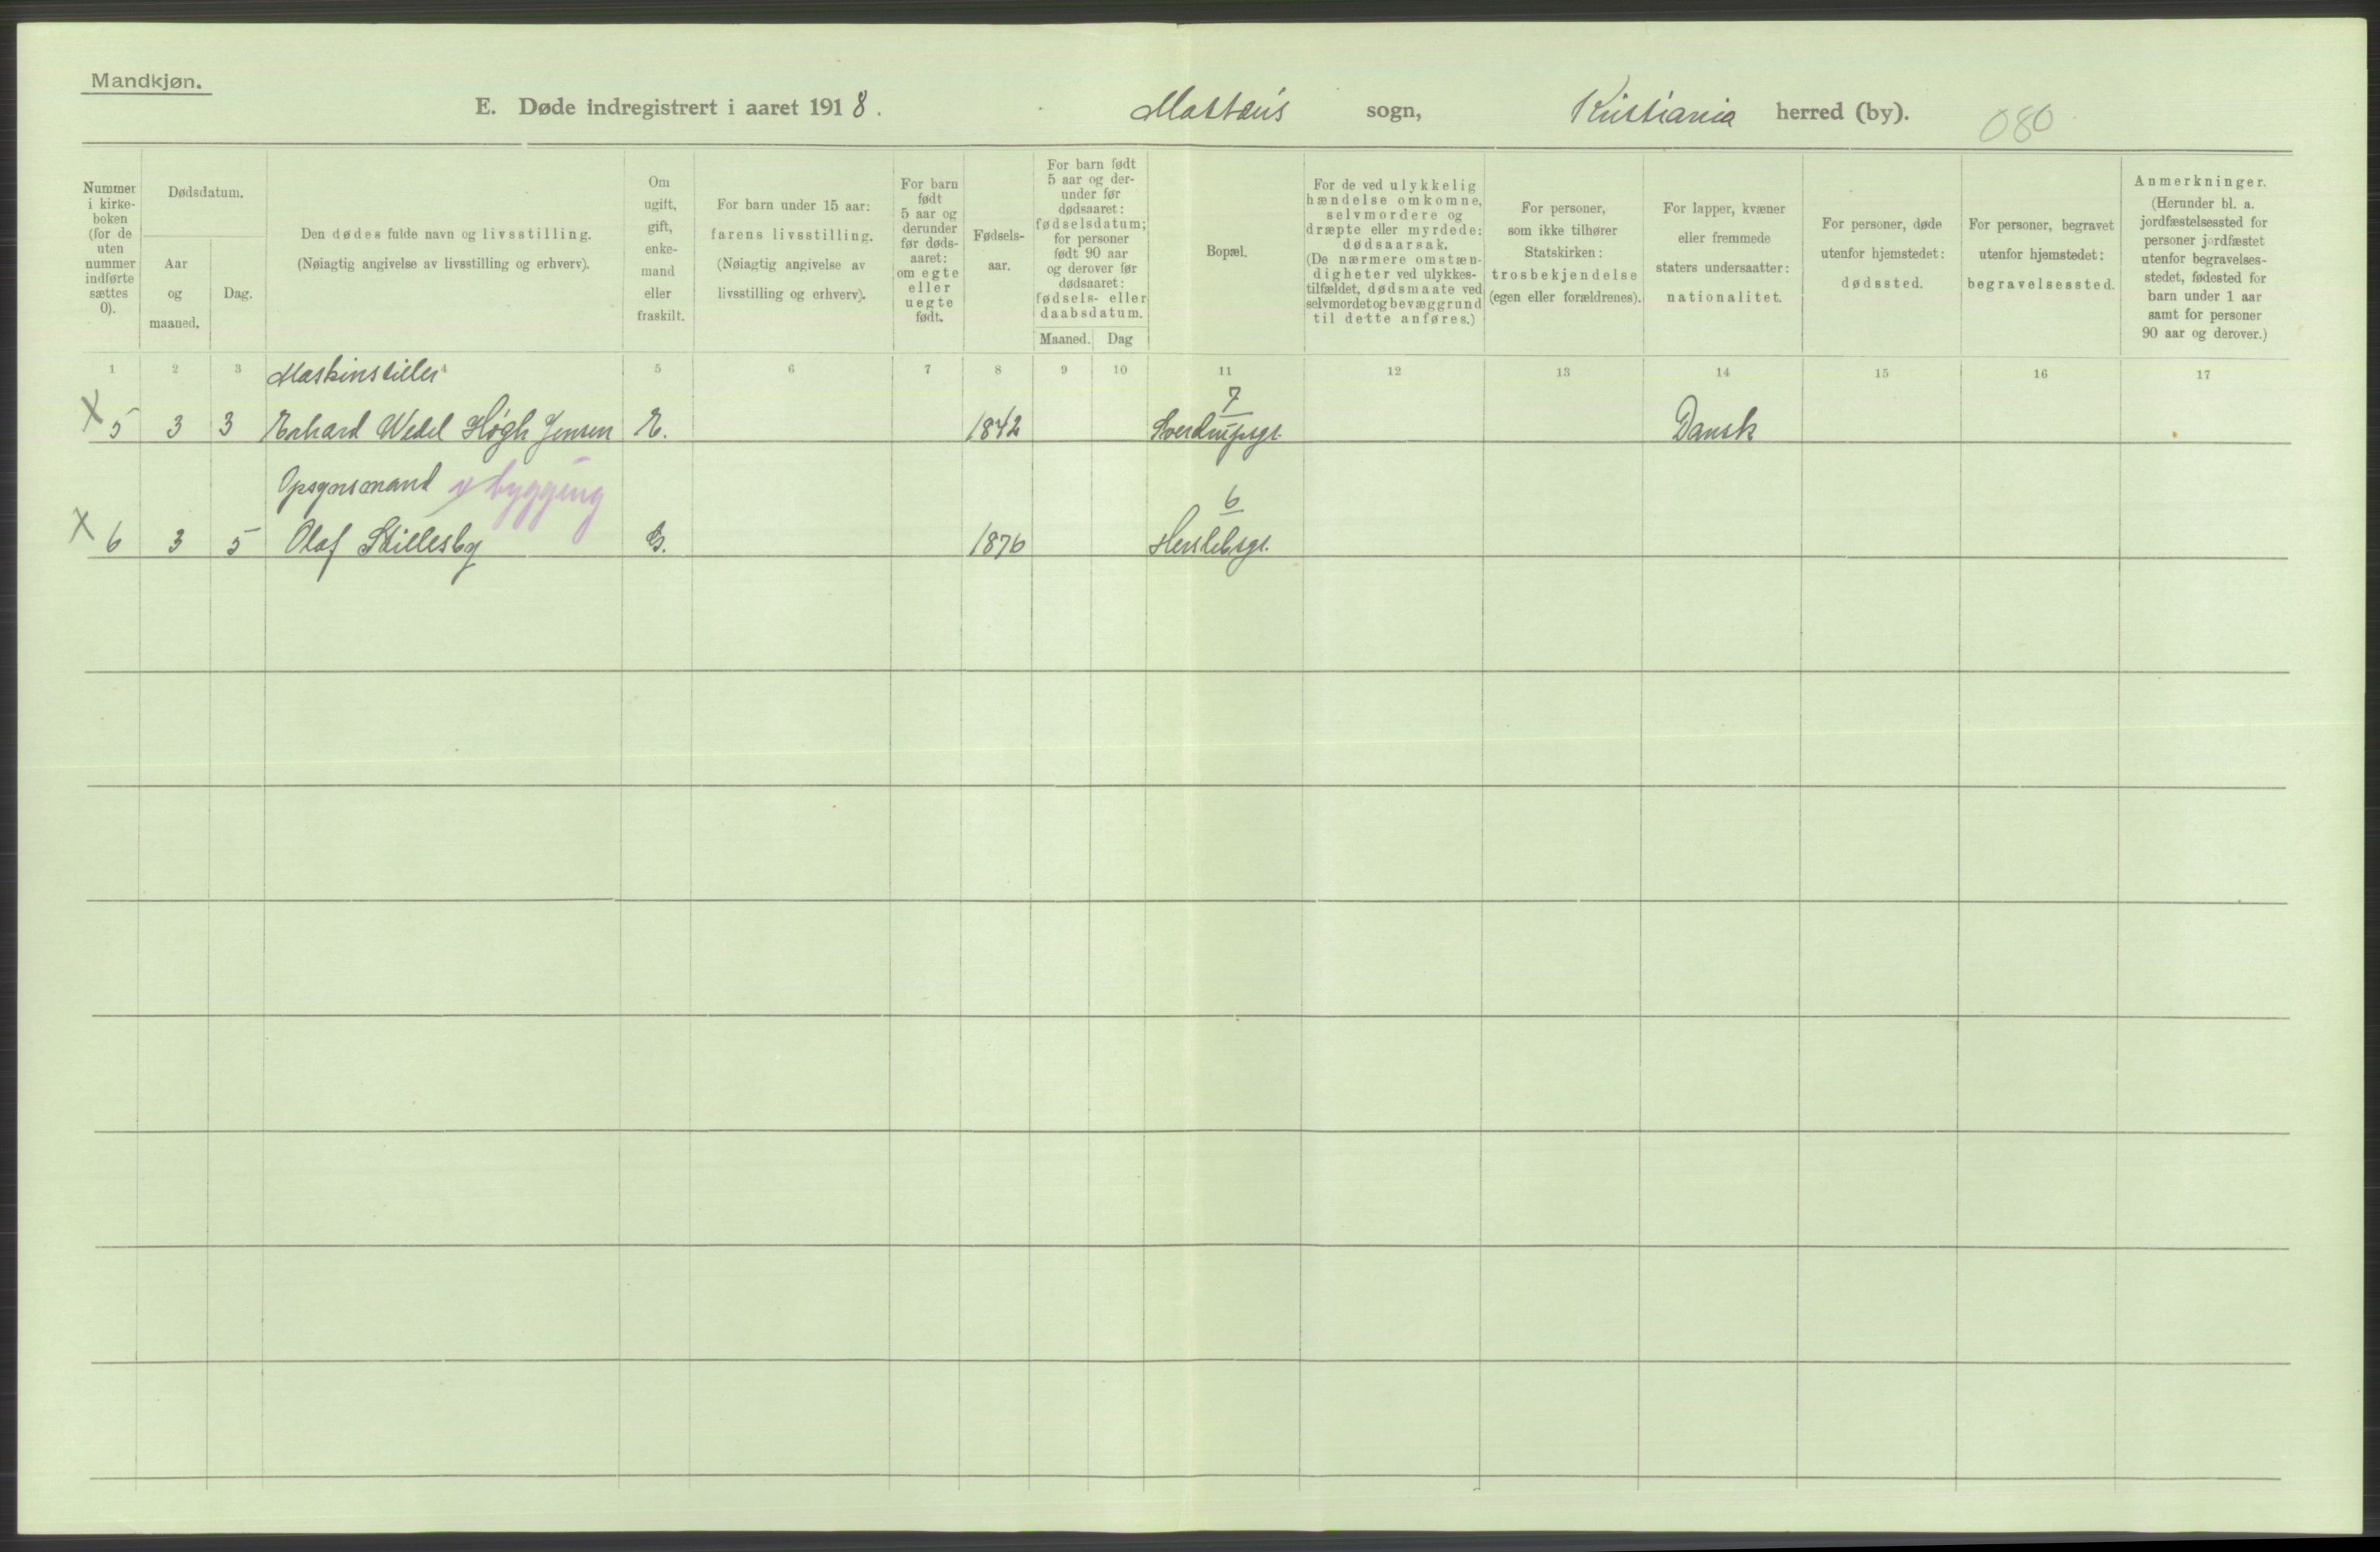 Mandkjøn.
E. Døde indregistrert i aaret 1918. Mattæus sogn, Kristiania herred (by). 080
Nummer i kirkeboken (for de uten nummer indførte sættes 0).
Dødsdatum.
Aar og maaned.
Dag.
Den dødes fulde navn og livsstilling.
(Nøiagtig angivelse av livsstilling og erhverv).
Om ugift, gift, enkemand eller fraskilt.
For barn under 15 aar: farens livsstilling.
(Nøiagtig angivelse av livsstilling og erhverv).
For barn født 5 aar og derunder før dødsaaret: om egte eller uegte født.
Fødselsaar.
For barn født 5 aar og derunder før dødsaaret: fødselsdatum; for personer født 90 aar og derover før dødsaaret: fødsels- eller daabsdatum.
Maaned. Dag
Bopæl.
For de ved ulykkelig hændelse omkomne, selvmordere og dræpte eller myrdede: dødsaarsak.
(De nærmere omstændigheter ved ulykkestilfældet, dødsmaate ved selvmordet og bevæggrund til dette anføres.)
For personer, som ikke tilhører Statskirken: trosbekjendelse (egen eller forældrenes).
For lapper, kvæner eller fremmede staters undersaatter: nationalitet.
For personer, døde utenfor hjemstedet: dødssted.
For personer, begravet utenfor hjemstedet: begravelsessted.
Anmerkninger.
(Herunder bl. a. jordfæstelsessted for personer jordfæstet utenfor begravelsesstedet, fødested for barn under 1 aar samt for personer 90 aar og derover.)
1 2 3 5 6 7 8 9 10 11 12 13 14 15 16 17
Maskinstiller
7
X 5 3 3 Erhard Wedel Høgh Jensen E. 1842 Sverdrupsgt. Dansk
Opsynsmand v bygging
6
X 6 3 5 Olaf Skillesby G. 1876 Herslebsgt.